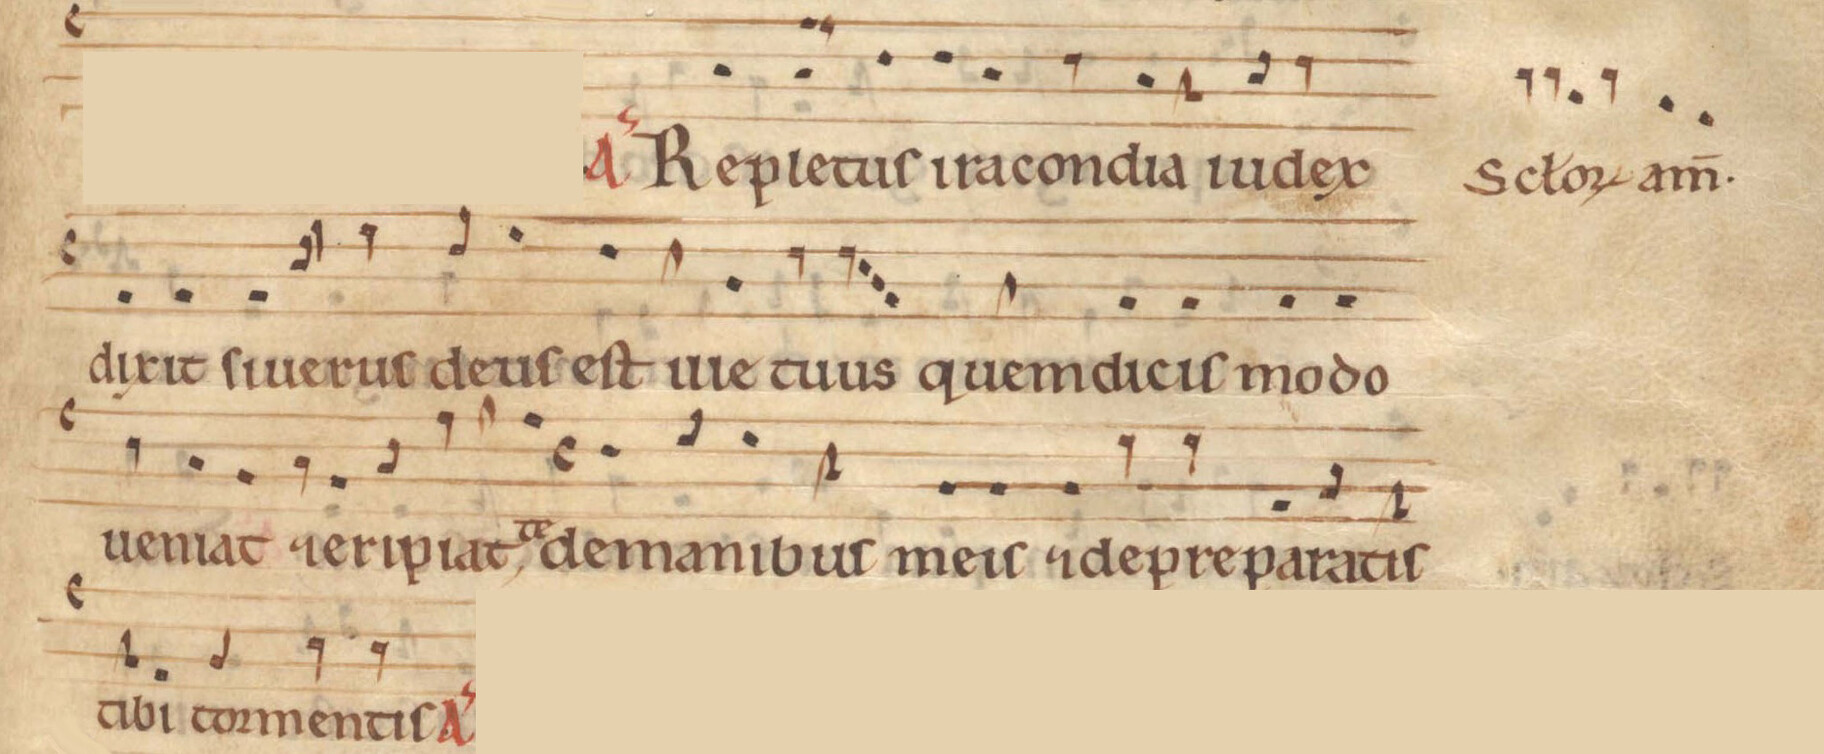 A Repletus iracondia iudex Sctoꝝ am̄.
dixit siuerus deus est uie tuus quemdicis modo
ueniat ⁊eripiat te demanibus meis ⁊depreparatis
tibi tormentis A